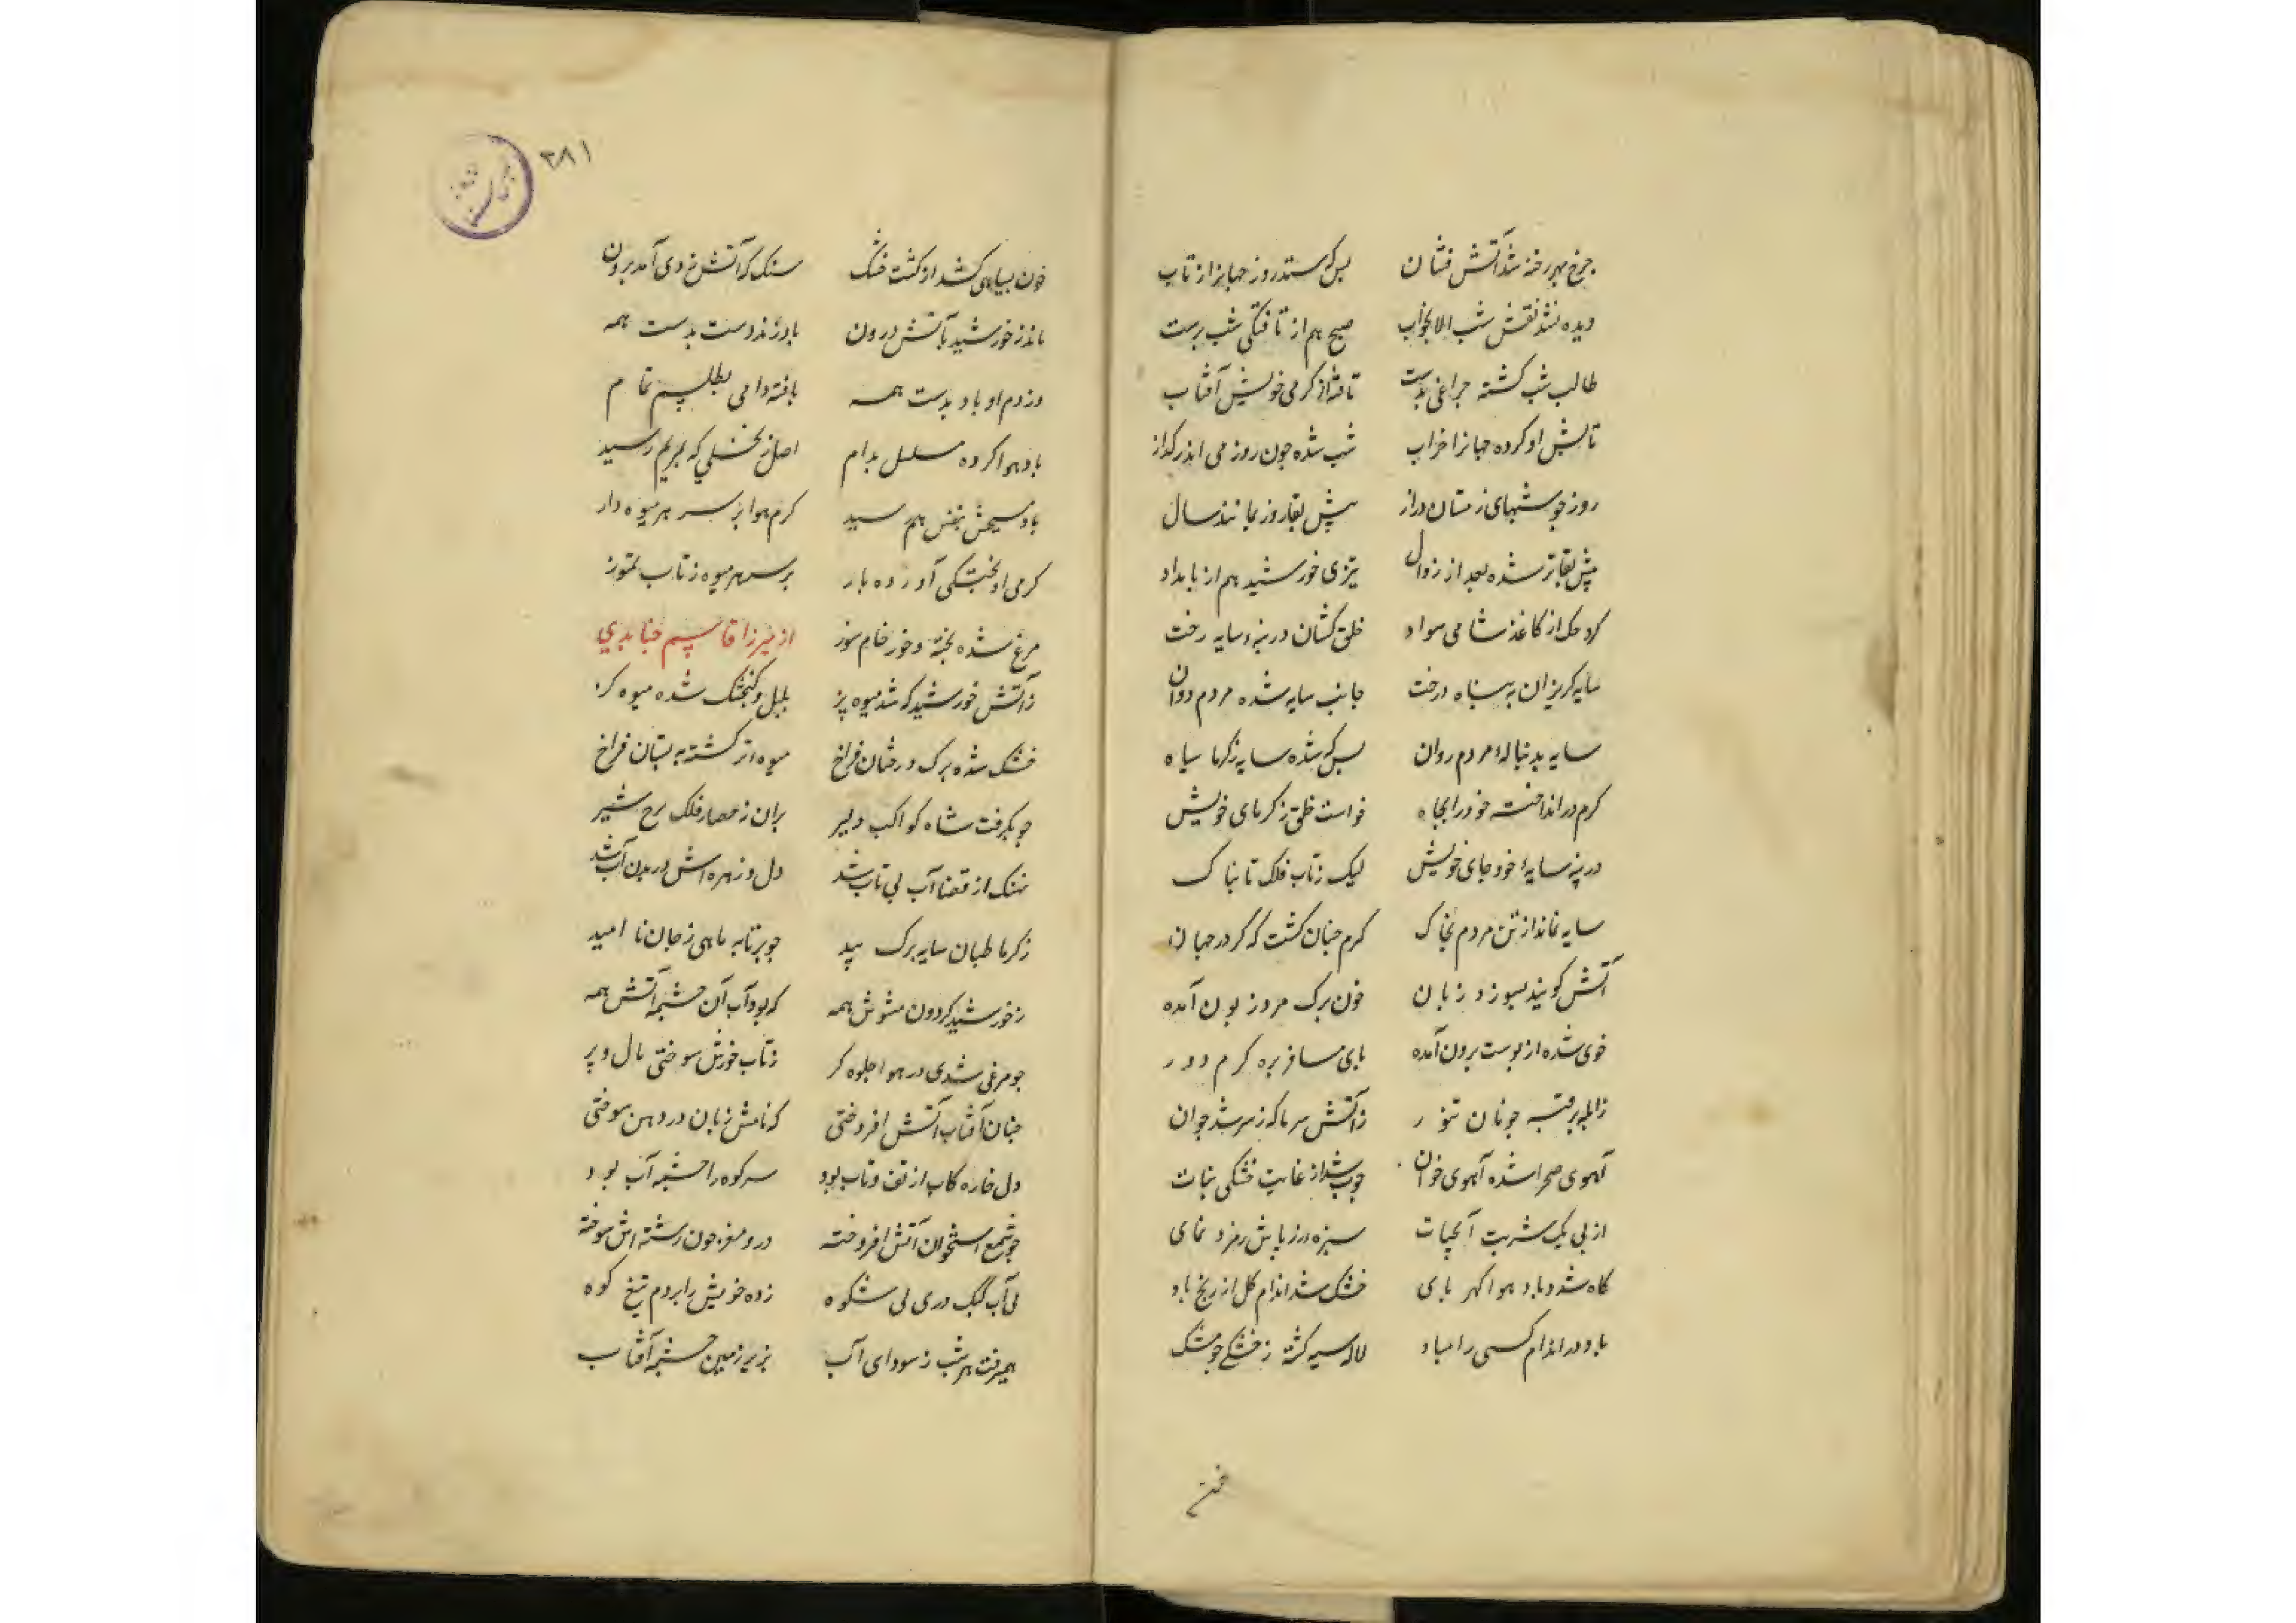 چرخ بهر رخنه شد آتش فشان بس که ستد روز جهانرا ز تاب
دیده نشد نقش شب الا بخواب صبح هم از تافتگی شب پرست
طالب شب گشته چراغی بدست تافته از گرمی خویش آفتاب
تابش او کرده جهانرا خراب شب شده چون روز می اندر گداز
روز چو شبهای زمستان دراز پیش بقا روز نمانند سال
پیش بقاتر شده بعد از زوال تیزی خورشید هم از بامداد
کرد حک از کاغذ شامی سواد خلق کشان در پنه سایه رخت
سایه گریزان به پناه درخت جانب سایه شده مردم دوان
سایه بدنبالهٔ مردم روان بس که شده سایه ز گرما سیاه
گرم در انداخته خود را بچاه خواست خلق ز گرمای خویش
در پنه سایهٔ خود جای خویش لیک ز تاب فلک تابناک
سایه نماند از تن مردم بخاک گرم چنان گشت که گر در جهان
آتش گویند بسوزد زبان خون برگ مرد زبون آمده
خوی شده از پوست برون آمده پای مسافر بره گرم دور
ز آبله پر قبه چو نان تنور ز آتش گرما که ز سر شد جوان
آهوی صحرا شده آهوی خوان چوب شد از غایت خشکی نبات
از پی یک شربت آبحیات سبزه در زیاش زمرد نمای
کاه شد و باد هوا کهربای خشک شد اندام گل از رنج باد
باد در اندام کسی را مباد لاله سیه گشته ز خشکی چو مشک
۲۸۱
خون بسیاهی کشد او گشت خشک سنک که آتش ز وی آمد برون
ماند ز خورشید بآتش درون باد زند دست بدست همه
وز دم او باد بدست همه بافته دامی بطلسم تمام
باد هوا کرده مسلسل بدام اصل ز نخلی که بمریم رسید
باد مسیحش بنفس هم رسید گرم هوا بر سر هر میوه دار
گرمی او پختگی آورده بار بر سر هر میوه ز تاب تموز
مرغ شده پخته و خور خام سوز از میرزا قاسم جنابدی
ز آتش خورشید که شد میوه پز بلبل و گنجشک شده میوه گز
خشک شده برگ درختان فراخ میوه تر گشته به بستان فراخ
چو بگرفت شاه کواکب دلیر بران ز حصار فلک برج شیر
نهنک از قضا آب بی تاب شد دل و زهره اش در بدن آب شد
ز گرما طپان سایه برگ بید چو بر تابه ماهی ز جان نا امید
ز خورشید گردون مشوش همه که بود آب آن چشمه آتش همه
چو مرغی شدی در هوا جلوه گر ز تاب خورش سوختی بال و پر
چنان آفتاب آتش افروختی که نامش زبان در دهن سوختی
دل خاره کاب از تف و تاب بود سر کوه را چشمه آب بود
چو شمع استخوان آتش افروخته درو مغز چون رشته اش سوخته
بی آب کبک دری بی شکوه زده خویش را بر دم تیغ کوه
همیرفت هر شب ز سودای آب بزیر زمین چشمه آفتاب